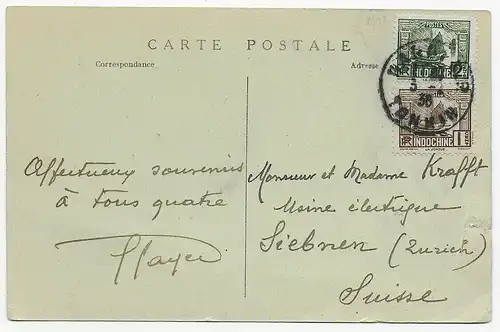 POSTES
CARTE POSTALE
Correspondance
Adresse
INDOCHINE 2
TONKIN
36
INDOCHINE 1
LA JONQUE
Affectueux souvenirs
à tous quatre
Monsieur et Madame Krafft
Usine électrique
Siebnen (Zurich)
Suisse